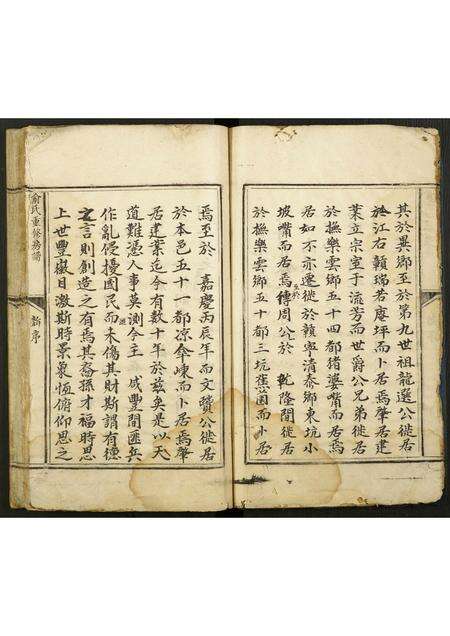 其於異鄉至於第九世祖龍選公徙居
於江右贛瑞若庵坪而卜居焉肇居建
業立宗室于流芳而世爵公兄弟徙居
於撫樂雲鄉五十四都豬婆嘴而居焉
居如不亦遷徙於贛寧清泰鄉東坑小
坡嘴而居焉傳周公於 乾隆間徙居
於撫樂雲鄉五十都三坑蕉園而卜居
焉至於 嘉慶丙辰年而文贊公徙居
於本邑五十一都凉傘崠而卜居焉肇
居建業迄今有數十年於茲矣是以天
道難憑人事莫測今主 咸豐間匪兵
作亂侵擾國民而未傷其財斯謂有德
之言則創造之有焉其裔孫才福時思
上世豐徽日激斯時景象恆俯仰思之
俞氏重修房譜
新序